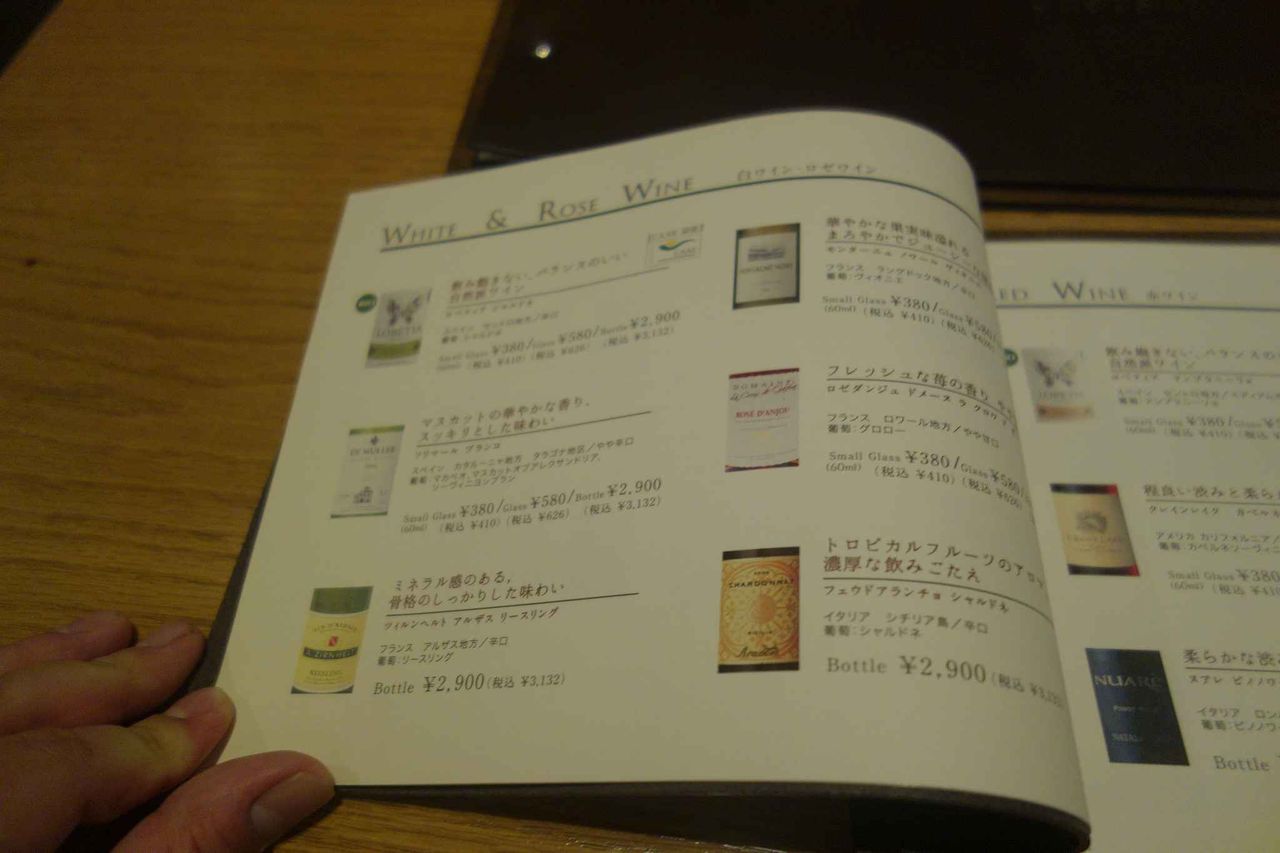 WHITE & ROSE WINE 白ワイン・ロゼワイン
飲み飽きない、バランスのいい
自然派ワイン
ロベティア シャルドネ
葡萄:シャルドネ
Small Glass ¥380/Glass ¥580/Bottle ¥2,900
(60ml) (税込 ¥410) (税込 ¥626) (税込 ¥3,132)
LOBETIA
マスカットの華やかな香り、
スッキリとした味わい
ソリマール ブランコ
スペイン カタルーニャ地方 タラゴナ地区/やや辛口
葡萄:マカベオ,マスカットオブアレクサンドリア,
ソーヴィニヨンブラン
Small Glass ¥380/Glass ¥580/Bottle ¥2,900
(60ml) (税込 ¥410) (税込 ¥626) (税込 ¥3,132)
DE MULLER
ミネラル感のある,
骨格のしっかりした味わい
ツィルンヘルト アルザス リースリング
フランス アルザス地方/辛口
葡萄:リースリング
Bottle ¥2,900 (税込 ¥3,132)
VIN D'ALSACE
RIESLING
華やかな果実味溢れる
まろやかでジューシー
フランス ラングドック地方/辛口
葡萄:ヴィオニエ
Small Glass ¥380/Glass ¥580
(60ml) (税込 ¥410) (税込 ¥626)
フレッシュな苺の香り
ロゼダンジュ ドメーヌ ラ クロワ
フランス ロワール地方/やや甘口
葡萄:グロロー
Small Glass ¥380/Glass ¥580
(60ml) (税込 ¥410) (税込 ¥626)
DOMAINE
ROSE D'ANJOU
トロピカルフルーツのアロマ
濃厚な飲みごたえ
フェウドアランチョ シャルドネ
イタリア シチリア島/辛口
葡萄:シャルドネ
Bottle ¥2,900 (税込 ¥3,132
CHARDONNAY
Arancio
RED WINE 赤ワイン
飲み飽きない、バランスの
自然派ワイン
ロベティア テンプラニーリョ
葡萄:テンプラニーリョ
Small Glass ¥380/Glass ¥5
(60ml) (税込 ¥410) (税込
程良い渋みと柔ら
クレインレイク カベルネ
アメリカ カリフォルニア/
葡萄:カベルネソーヴィニ
Small Glass ¥380
(60ml) (税込 ¥410)
柔らかな渋
スアレ ピノノワ
イタリア ロン
葡萄:ピノノワ
Bottle
NUARE
PINOT